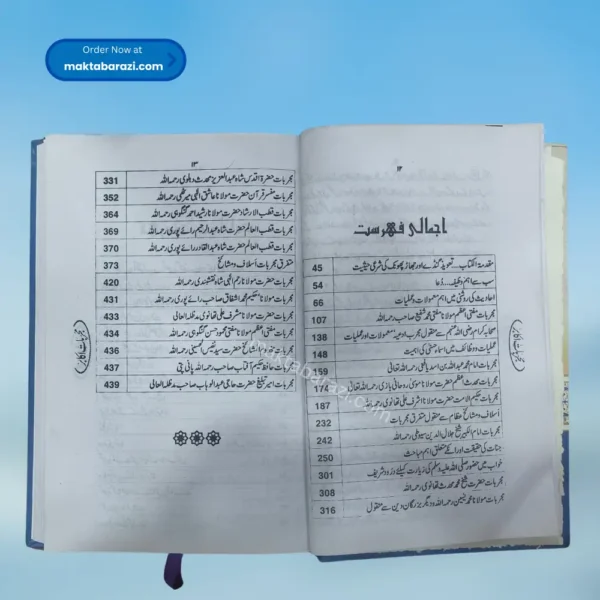 Order Now at
maktabarazi.com
۱۲
اجمالی فہرست
مقدمۃ الکتاب، تعویذ گنڈے اور جھاڑ پھونک کی شرعی حیثیت 45
سب سے اہم وظیفہ، دُعا 54
احادیث کی روشنی میں اہم معمولات و عملیات 66
مجربات مفتی اعظم مولانا مفتی محمد شفیع صاحب رحمہ اللہ 107
صحابہ کرام رضی اللہ عنہم سے منقول مجرب ادعیہ، معمولات اور عملیات 138
عملیات و وظائف میں اسماء حسنیٰ کی اہمیت 148
مجربات امام محمد عبداللہ بن اسعد یافعی رحمہ اللہ تعالیٰ 159
مجربات محدث اعظم حضرت مولانا موسیٰ روحانی بازی رحمہ اللہ تعالیٰ 174
مجربات حکیم الامت حضرت مولانا اشرف علی تھانوی رحمہ اللہ تعالیٰ 187
اسلاف و مشائخ عظام سے منقول متفرق مجربات 232
مجربات امام الکبیر شیخ جلال الدین سیوطی رحمہ اللہ 242
جنات کی حقیقت اور ان کے متعلق اہم مباحث 250
خواب میں حضور صلی اللہ علیہ وسلم کی زیارت کیلئے درود شریف 301
مجربات حضرت شیخ محمد محدث تھانوی رحمہ اللہ 308
مجربات مولانا محمد یٰسین رحمہ اللہ و دیگر بزرگان دین سے منقول 316
۱۳
مجربات حضرۃ اقدس شاہ عبدالعزیز محدث دہلوی رحمہ اللہ 331
مجربات مفسر قرآن حضرت مولانا عاشق الٰہی میرٹھی رحمہ اللہ 352
مجربات قطب الارشاد حضرت مولانا رشید احمد گنگوہی رحمہ اللہ 364
مجربات قطب العالم حضرت شاہ عبدالرحیم رائے پوری رحمہ اللہ 369
مجربات قطب العالم حضرت شاہ عبدالقادر رائے پوری رحمہ اللہ 370
متفرق مجربات اسلاف و مشائخ 373
مجربات حضرت مولانا رحم الٰہی شاہ نقشبندی رحمہ اللہ 420
مجربات مولانا حکیم محمد اشفاق صاحب رائے پوری رحمہ اللہ 431
مجربات حضرت مولانا مشرف علی تھانوی مدظلہ العالی 433
مجربات مفتی اعظم مولانا مفتی محمود حسن گنگوہی رحمہ اللہ 434
مجربات مخدوم المشائخ حضرت سید نفیس الحسینی رحمہ اللہ 436
مجربات حافظ حکیم آفتاب صاحب رحمہ اللہ پانی پتی 437
مجربات امیر تبلیغ حضرت حاجی عبدالوہاب صاحب مدظلہ العالی 439
maktabarazi.com